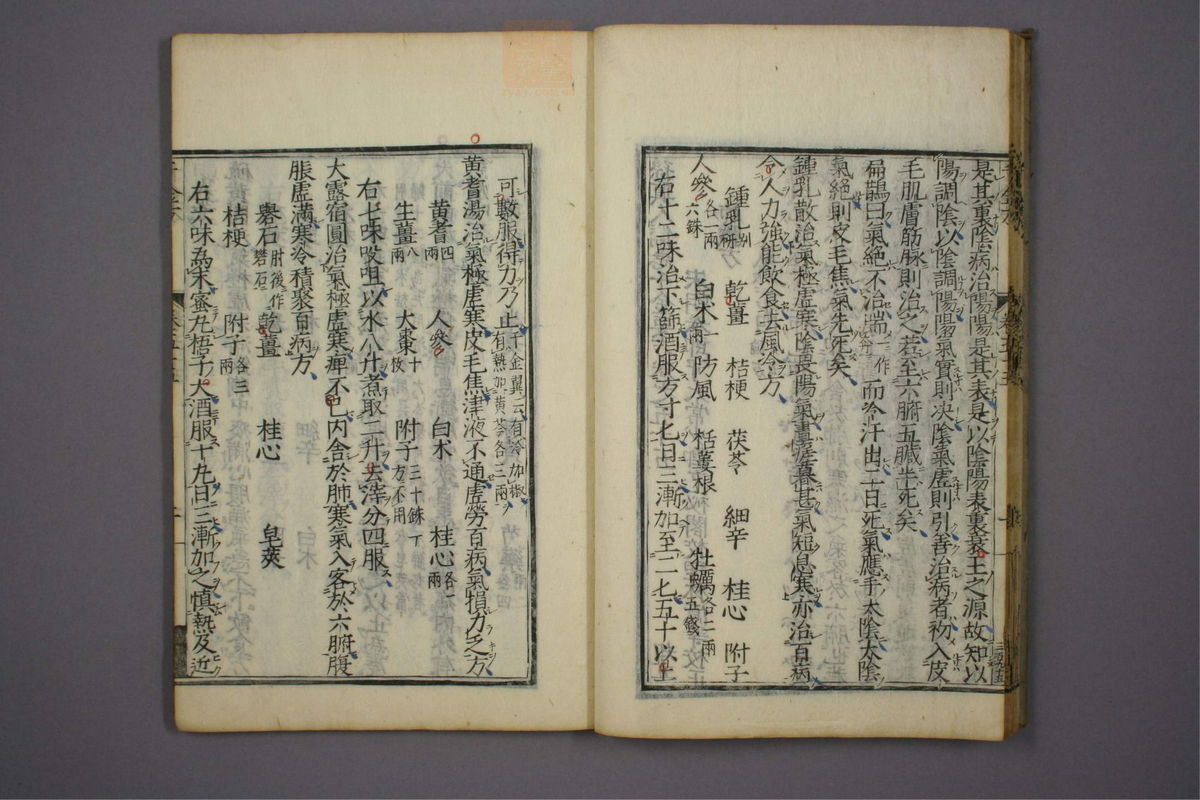 是其裏陰病治陽陽是其表是以陰陽表裏衰王之源故知以
陽調陰以陰調陽陽氣實則決陰氣虛則引善治病者初入皮
毛肌膚筋脉則治之若至六腑五臟半死矣
扁鵲曰氣絶不治喘一作奔而冷汗出二日死氣應手太陰太陰
氣絶則皮毛焦氣先死矣
鍾乳散治氣極虛寒陰畏陽氣晝差暮甚氣短息寒亦治百病
令人力強能飲食去風冷方
鍾乳別研 乾薑 桔梗 茯苓 細辛 桂心 附子
人參各一兩六銖 白朮一兩 防風 栝蔞根 牡蠣各二兩五錢
右十二味治下篩酒服方寸匕日三漸加至二匕五十以上
可數服得力乃止千金翼云有冷加椒有熱加黄芩各三兩
黄耆湯治氣極虛寒皮毛焦津液不通虛勞百病氣損力乏方
黄耆四兩 人參 白朮 桂心各一兩
生薑八兩 大棗十 附子三十銖 方不用
右七味㕮咀以水八升煮取二升去滓分四服
大露宿圓治氣極虛寒痺不已内舍於肺寒氣入客於六腑腹
脹虛滿寒冷積聚百病方
礜石肘後作礬石 乾薑 桂心 皂莢
桔梗 附子各三兩
右六味爲末蜜丸梧子大酒服十丸日三漸加之慎熱及近